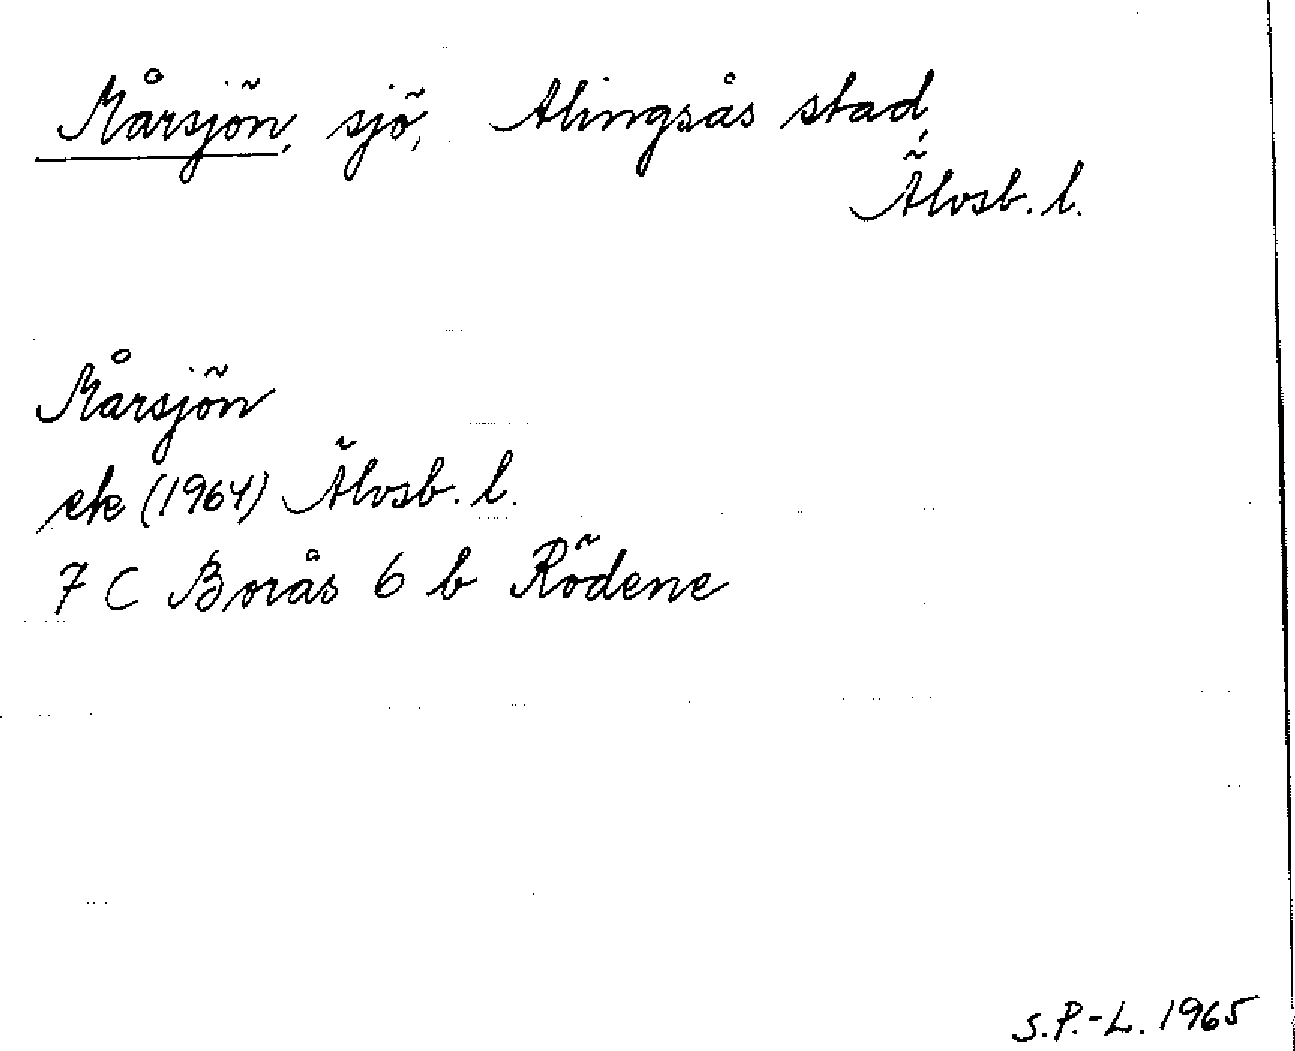 Mårsjön, sjö, Alingsås stad,
Älvsb. l.
Mårsjön
ek (1964) Älvsb. l.
7 C Borås 6 b Rödene
S.P.-L. 1965